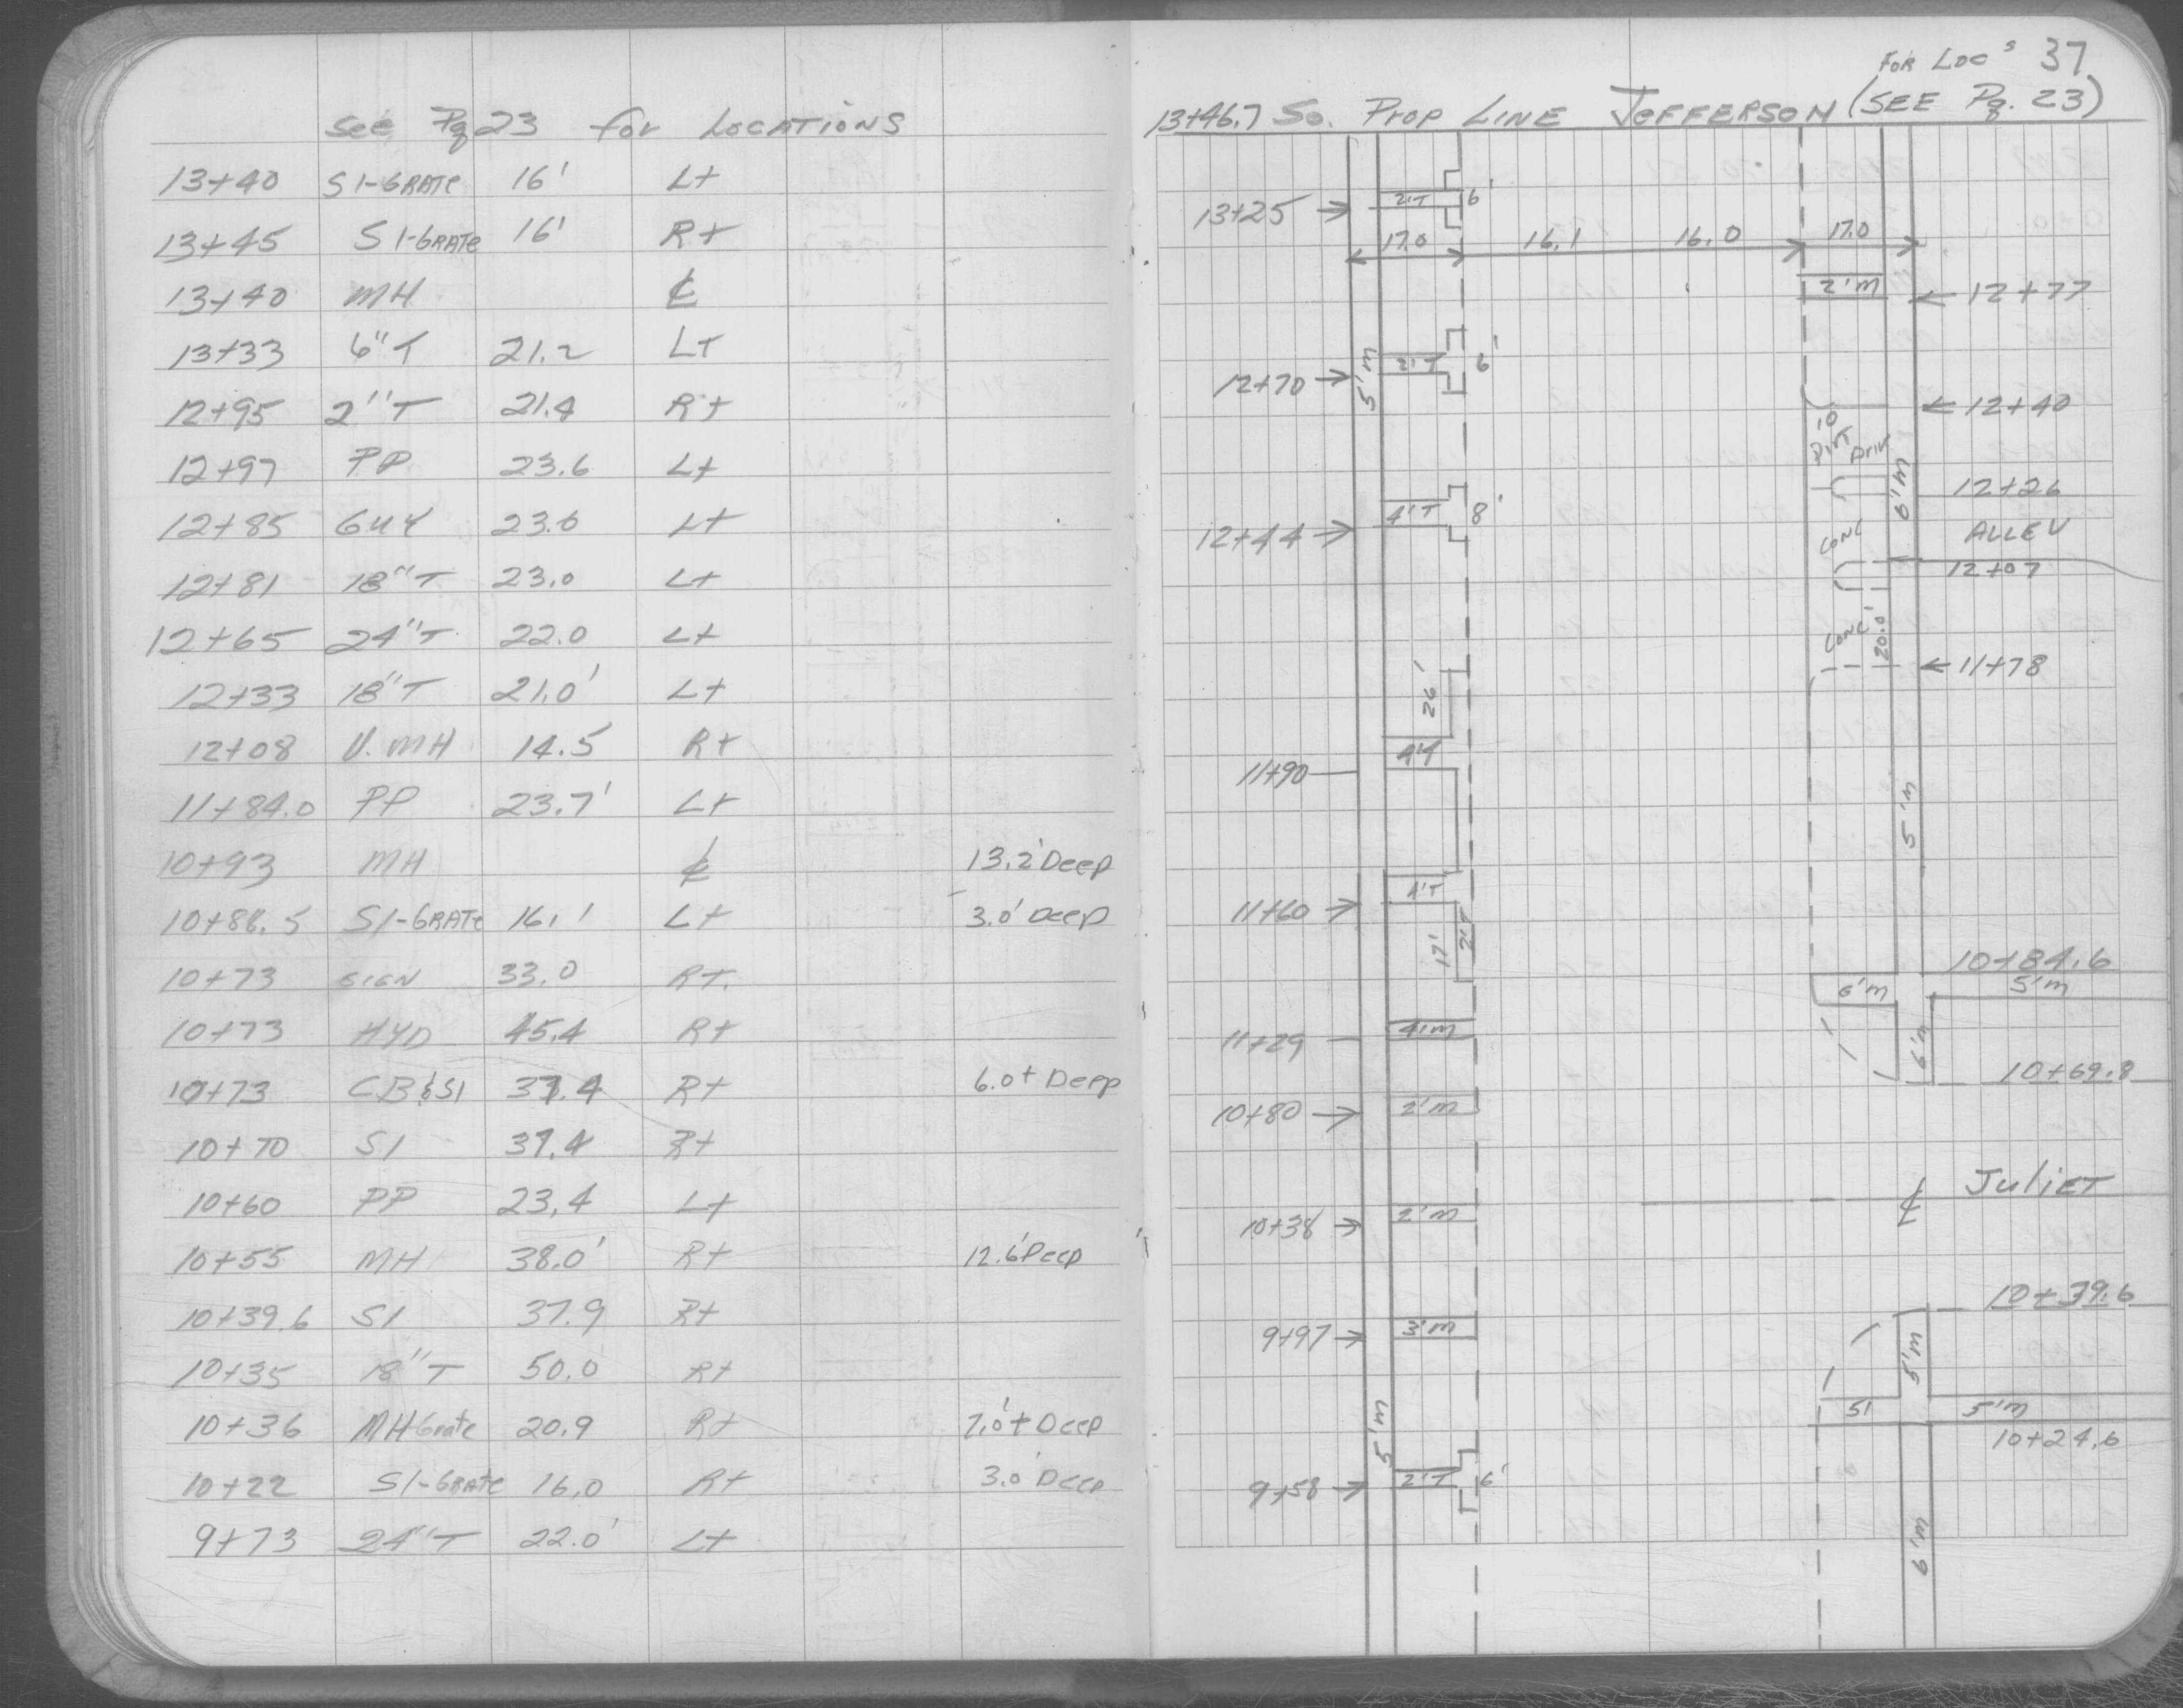 See Pg 23 for LOCATIONS
13+40 SI-GRATE 16' Lt
13+45 SI-GRATE 16' Rt
13+40 MH ℄
13+33 6"T 21.2 LT
12+95 2"T 21.4 Rt
12+97 PP 23.6 Lt
12+85 GUY 23.6 Lt
12+81 18"T 23.0 Lt
12+65 24"T 22.0 Lt
12+33 18"T 21.0' Lt
12+08 U.MH 14.5 Rt
11+84.0 PP 23.7' Lt
10+93 MH ℄ 13.2' Deep
10+88.5 SI-GRATE 16.1' Lt 3.0' Deep
10+73 SIGN 33.0 RT.
10+73 HYD 45.4 Rt
10+73 CB&SI 37.4 Rt 6.0+ Deep
10+70 SI 37.4 Rt
10+60 PP 23.4 Lt
10+55 MH 38.0' Rt 12.6' Deep
10+39.6 SI 37.9 Rt
10+35 18"T 50.0 Rt
10+36 MH Grate 20.9 Rt 7.0'+ Deep
10+22 SI-GRATE 16.0 Rt 3.0' Deep
9+73 24"T 22.0' Lt
FOR LOCs 37
13+46.7 So. PROP LINE JEFFERSON (SEE Pg. 23)
13+25 2'T 6'
17.0 16.1 16.0 17.0
2'M 12+77
12+70 5'M 2'T 6'
12+40
10' DIRT DRIV
12+44 4'T 8'
6'M 12+26
CONC ALLEY
12+07
CONC 20.0'
11+78
26'
11+90 4'T
5'M
11+60 4'T
17' 2'T
10+84.6
6'M 5'M
11+29 4'M
6'M 10+69.8
10+80 2'M
℄ JULIET
10+38 2'M
10+39.6
9+97 3'M
5'M
5' 5'M
10+24.6
5'M
9+58 2'T 6'
6'M